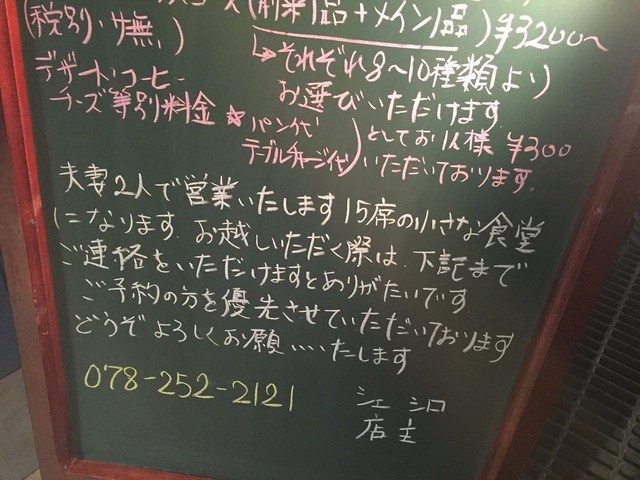 コース(前菜1品+メイン1品)¥3200〜
(税別・サ無)
→それぞれ8〜10種類より
お選びいただけます
デザート・コーヒー
チーズ等別料金
☆パン代
テーブルチャージ代
としてお1人様 ¥300
いただいております。
夫妻2人で営業いたします15席の小さな食堂
になります。お越しいただく際は、下記まで
ご連絡をいただけますとありがたいです
ご予約の方を優先させていただいております
どうぞよろしくお願いいたします
078-252-2121
シェ シロ
店主